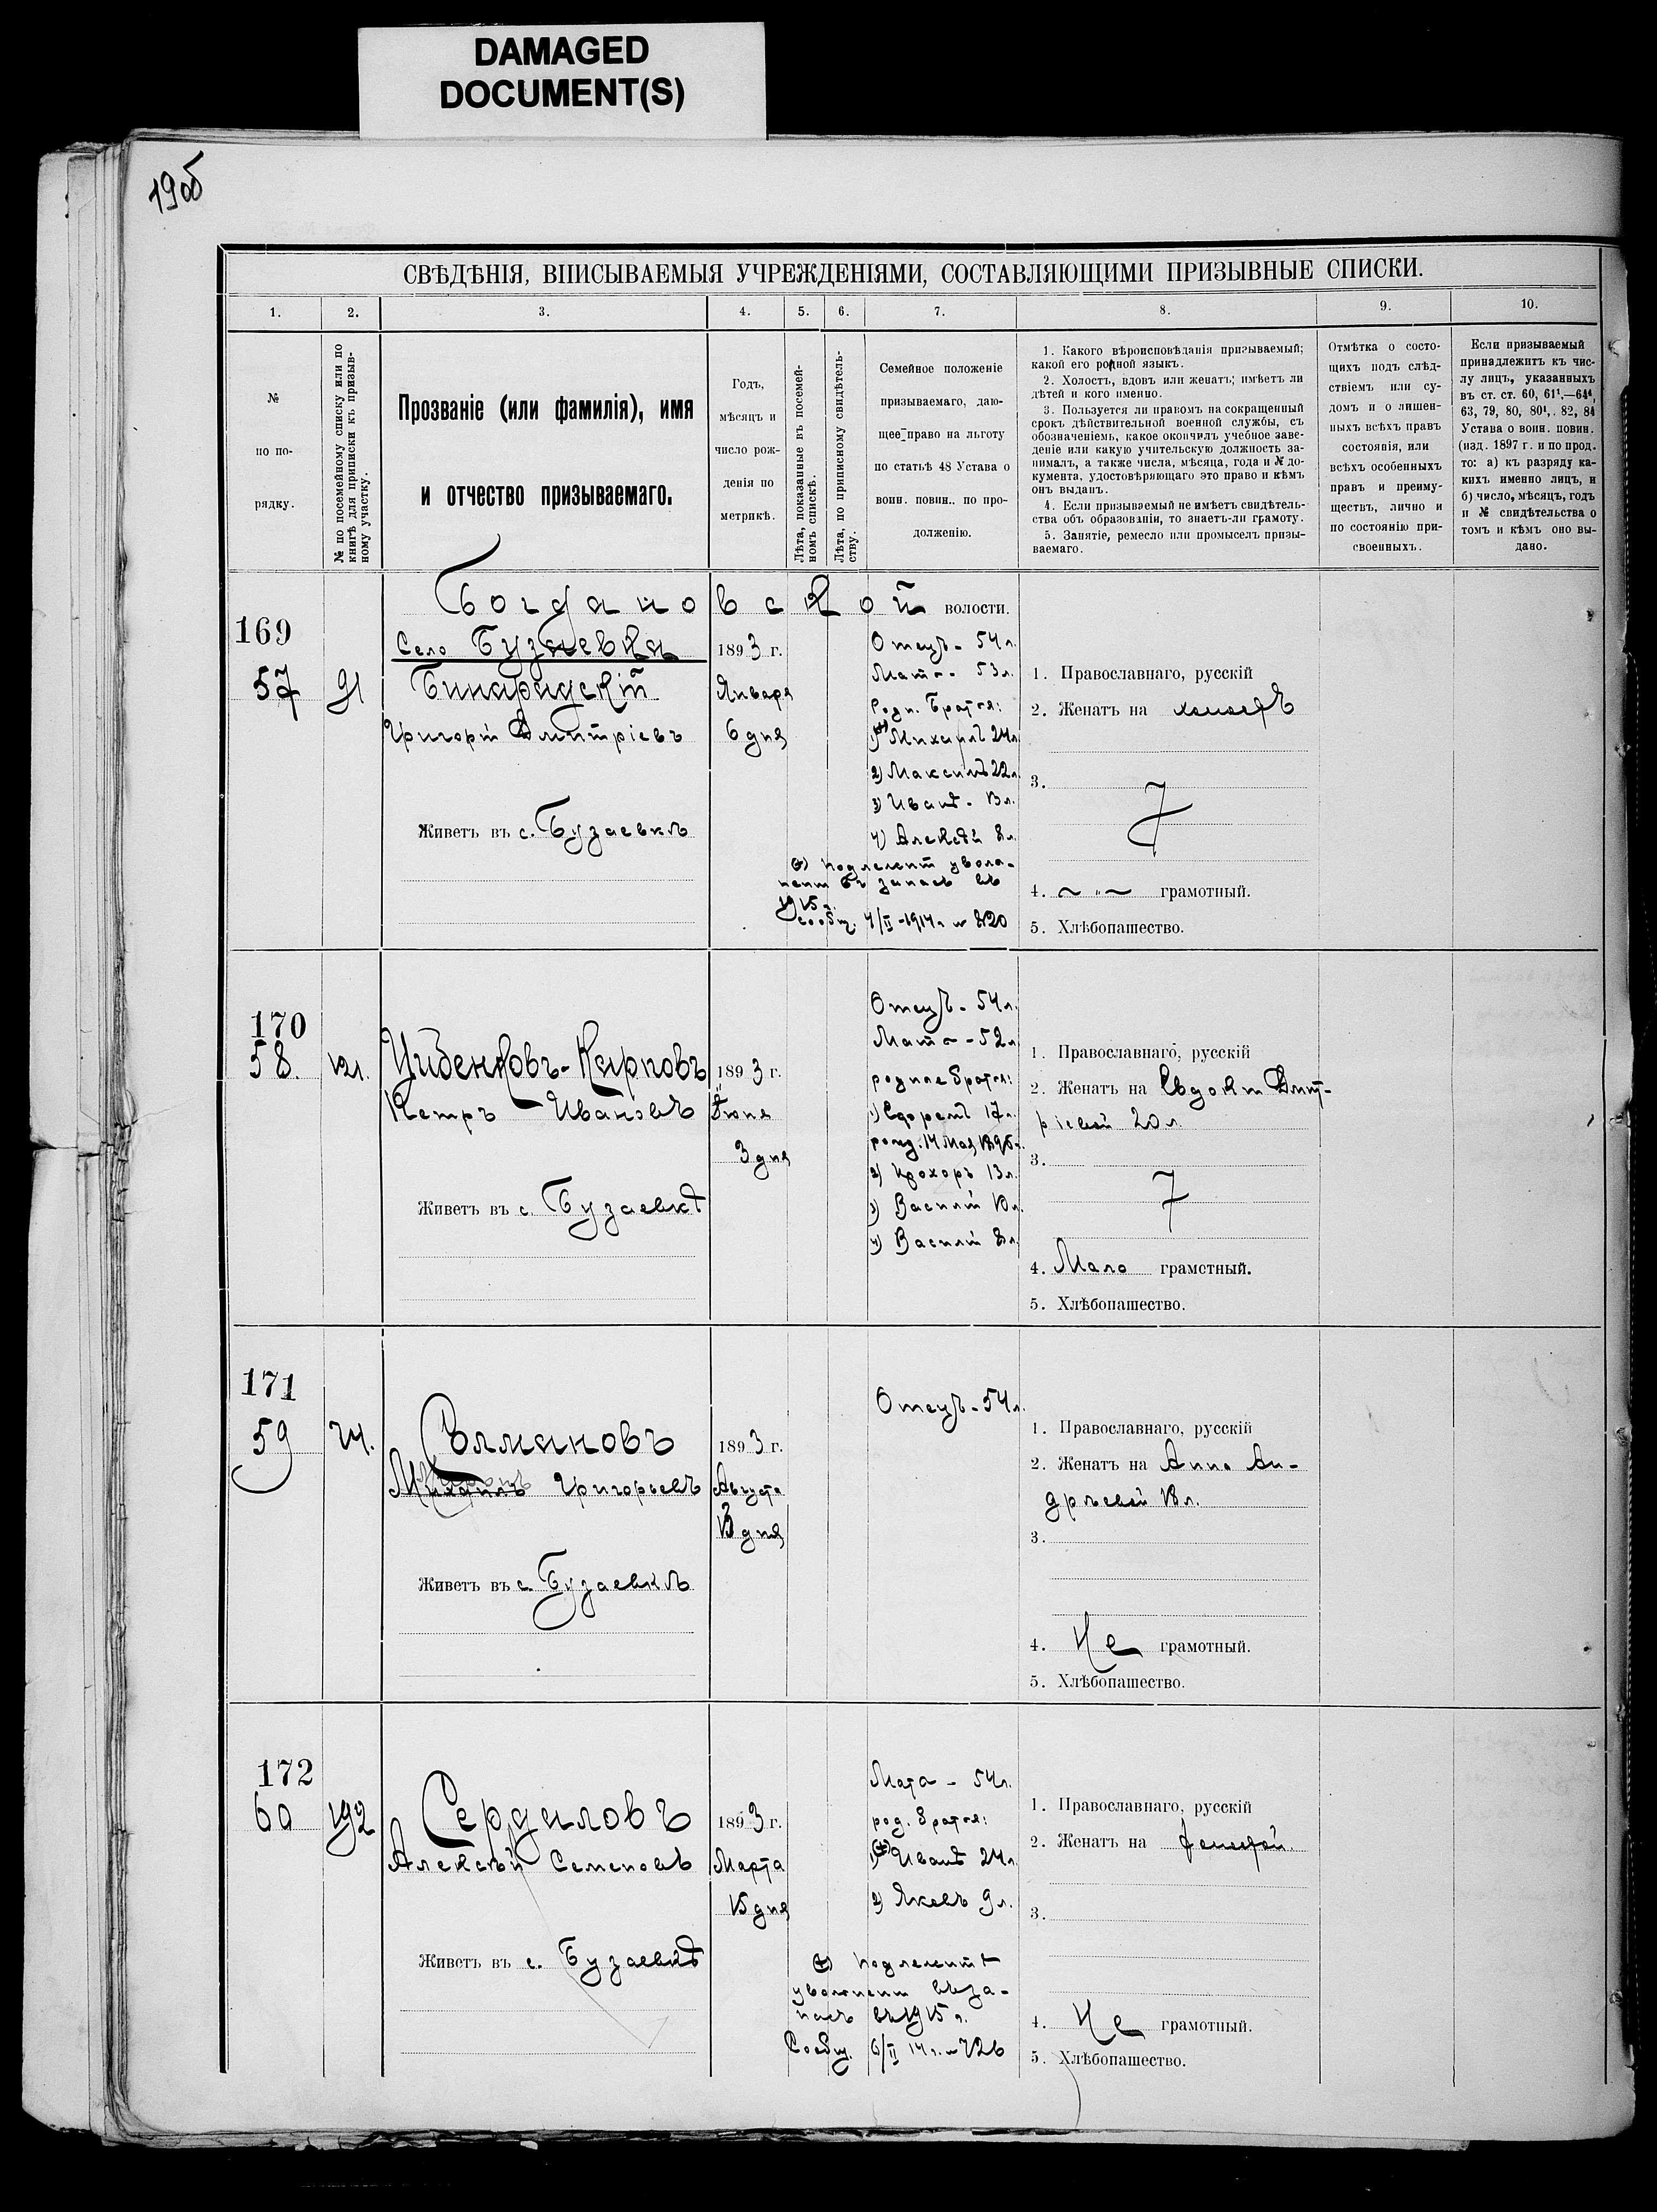 DAMAGED
DOCUMENT(S)
190б
СВѢДѢНІЯ, ВПИСЫВАЕМЫЯ УЧРЕЖДЕНІЯМИ, СОСТАВЛЯЮЩИМИ ПРИЗЫВНЫЕ СПИСКИ.
1. 2. 3. 4. 5. 6. 7. 8. 9. 10.
№
по по-
рядку.
№ по посемейному списку или по
книгѣ для приписки къ призыв-
ному участку.
Прозваніе (или фамилія), имя
и отчество призываемаго.
Годъ,
мѣсяцъ и
число рож-
денія по
метрикѣ.
Лѣта, показанные въ посемей-
номъ спискѣ.
Лѣта, по приписному свидѣтель-
ству.
Семейное положеніе
призываемаго, даю-
щее право на льготу
по статьѣ 48 Устава о
воин. повин., по про-
долженію.
1. Какого вѣроисповѣданія призываемый;
какой его родной языкъ.
2. Холостъ, вдовъ или женатъ; имѣетъ ли
дѣтей и кого именно.
3. Пользуется ли правомъ на сокращенный
срокъ дѣйствительной военной службы, съ
обозначеніемъ, какое окончилъ учебное заве-
деніе или какую учительскую должность за-
нималъ, а также числа, мѣсяца, года и № до-
кумента, удостовѣряющаго это право и кѣмъ
онъ выданъ.
4. Если призываемый не имѣетъ свидѣтель-
ства объ образованіи, то знаетъ-ли грамоту.
5. Занятіе, ремесло или промыселъ призы-
ваемаго.
Отмѣтка о состо-
щихъ подъ слѣд-
ствіемъ или су-
домъ и о лишен-
ныхъ всѣхъ правъ
состоянія, или
всѣхъ особенныхъ
правъ и преиму-
ществъ, лично и
по состоянію при-
своенныхъ.
Если призываемый
принадлежитъ къ чис-
лу лицъ, указанныхъ
въ ст. ст. 60, 61¹,—64⁴,
63, 79, 80, 80¹,. 82, 84
Устава о воин. повин.
(изд. 1897 г. и по прод.
то: а) къ разряду ка-
кихъ именно лицъ, и
б) число, мѣсяцъ, годъ
и № свидѣтельства о
томъ и кѣмъ оно вы-
дано.
Богдановской волости.
169
57
91
Село Бузаевка
Григорій Дмитріевъ
Живетъ въ с. Бузаевкѣ
1893 г.
Января
6 дня
Отецъ - 54 л.
Мать - 53 л.
Родн. братья:
1) Михаилъ 24 л.
2) Максимъ 22 л.
3) Иванъ - 13 л.
4) Алексѣй 8 л.
подлежитъ уволь-
въ запасъ въ
1915 г.
Сообщ. 4/II -1914 г. № 820
1. Православнаго, русскій
2. Женатъ на холостъ
3.
4. грамотный.
5. Хлѣбопашество.
170
58
121.
Циденковъ-Карповъ
Петръ Ивановъ
Живетъ въ с. Бузаевкѣ
1893 г.
Іюня
3 дня
Отецъ - 54 л.
Мать - 52 л.
родные братья:
17 л.
рожд. 14 Мая 1896 г.
2) Прохоръ 13 л.
3) Василій 10 л.
4) Василій 8 л.
1. Православнаго, русскій
2. Женатъ на Евдокіи Дмит-
ріевой 20 л.
3.
4. Мало грамотный.
5. Хлѣбопашество.
171
59
24.
Солмановъ
Михаилъ Григорьевъ
Живетъ въ с. Бузаевкѣ
1893 г.
Августа
13 дня
Отецъ - 54 л.
1. Православнаго, русскій
2. Женатъ на Анна Ан-
дреевой 18 л.
3.
4. Не грамотный.
5. Хлѣбопашество.
172
60
192
Сердиловъ
Алексѣй Семеновъ
Живетъ въ с. Бузаевкѣ
1893 г.
Марта
15 дня
Мать - 54 л.
род. братья:
1) Иванъ 24 л.
2) Яковъ 9 л.
подлежитъ
въ за-
пасъ въ 1915 г.
Сообщ. 6/II 14 г. № 726
1. Православнаго, русскій
2. Женатъ на
3.
4. Не грамотный.
5. Хлѣбопашество.